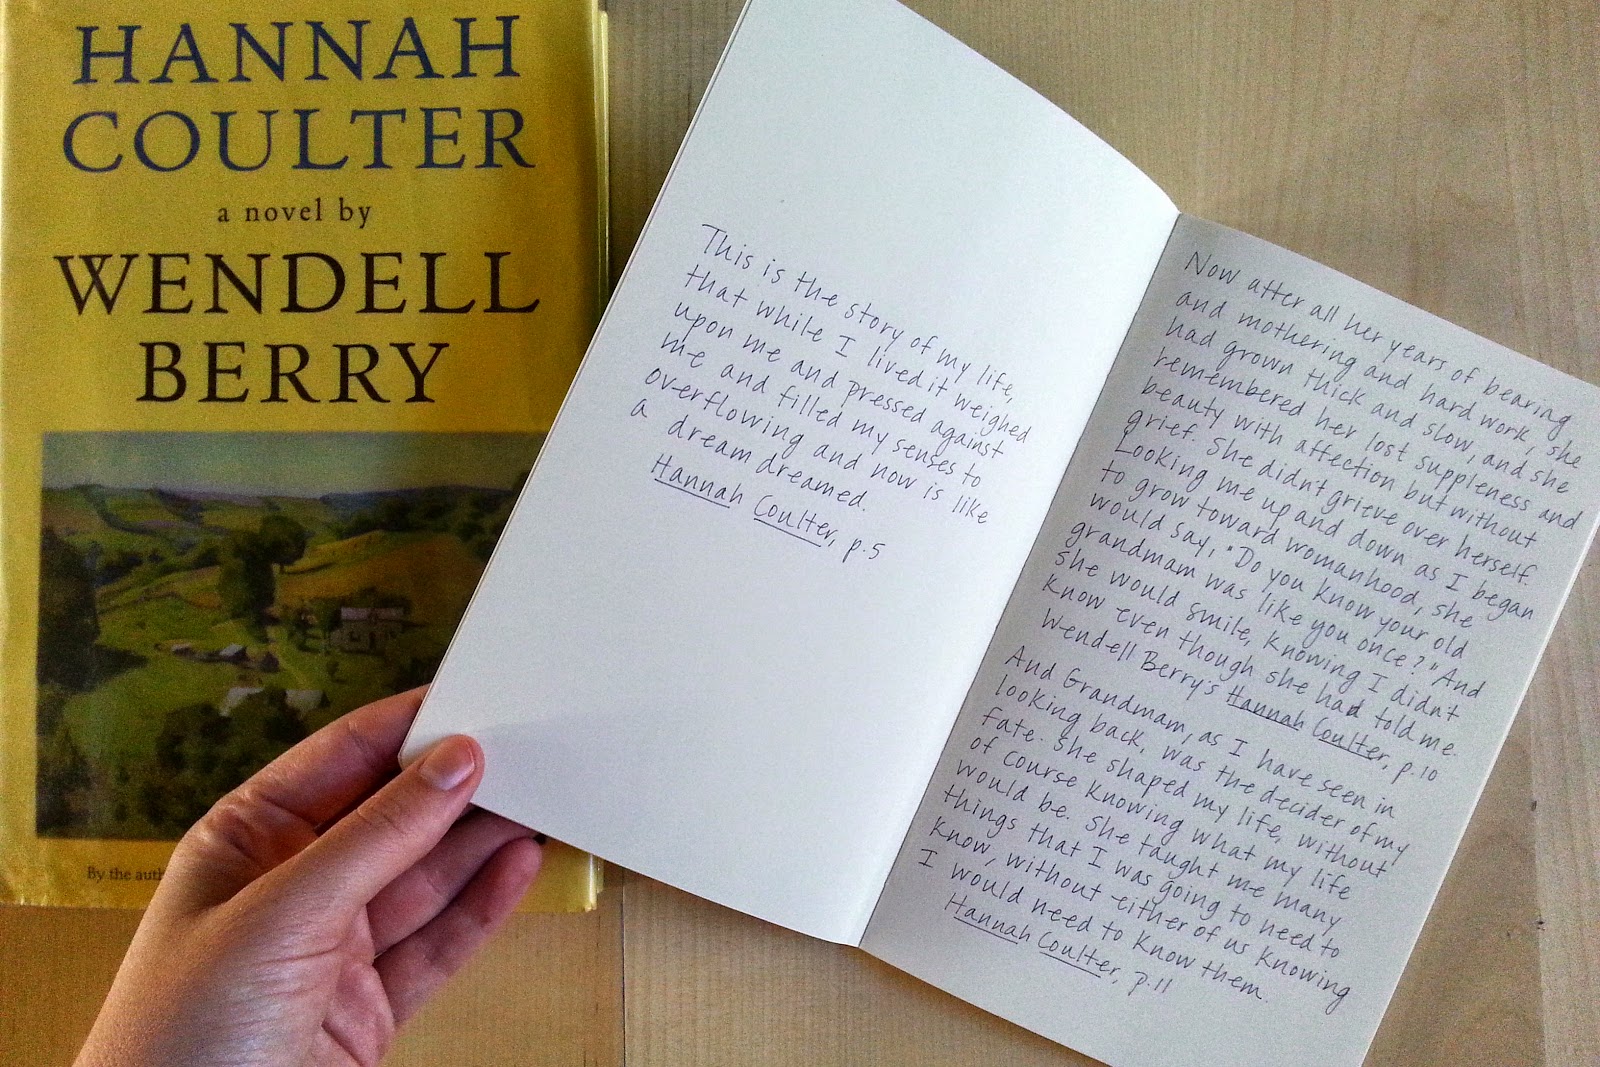 HANNAH
COULTER
a novel by
WENDELL
BERRY
By the auth
This is the story of my life,
that while I lived it weighed
upon me and pressed against
me and filled my senses to
overflowing and now is like
a dream dreamed.
Hannah Coulter, p.5
Now after all her years of bearing
and mothering and hard work, she
had grown thick and slow, and she
remembered her lost suppleness and
beauty with affection but without
grief. She didn't grieve over herself.
Looking me up and down as I began
to grow toward womanhood, she
would say, "Do you know your old
grandmam was like you once?" And
she would smile, knowing I didn't
know even though she had told me.
Wendell Berry's Hannah Coulter, p.10
And Grandmam, as I have seen in
looking back, was the decider of my
fate. She shaped my life, without
of course knowing what my life
would be. She taught me many
things that I was going to need to
know, without either of us knowing
I would need to know them.
Hannah Coulter, p.11